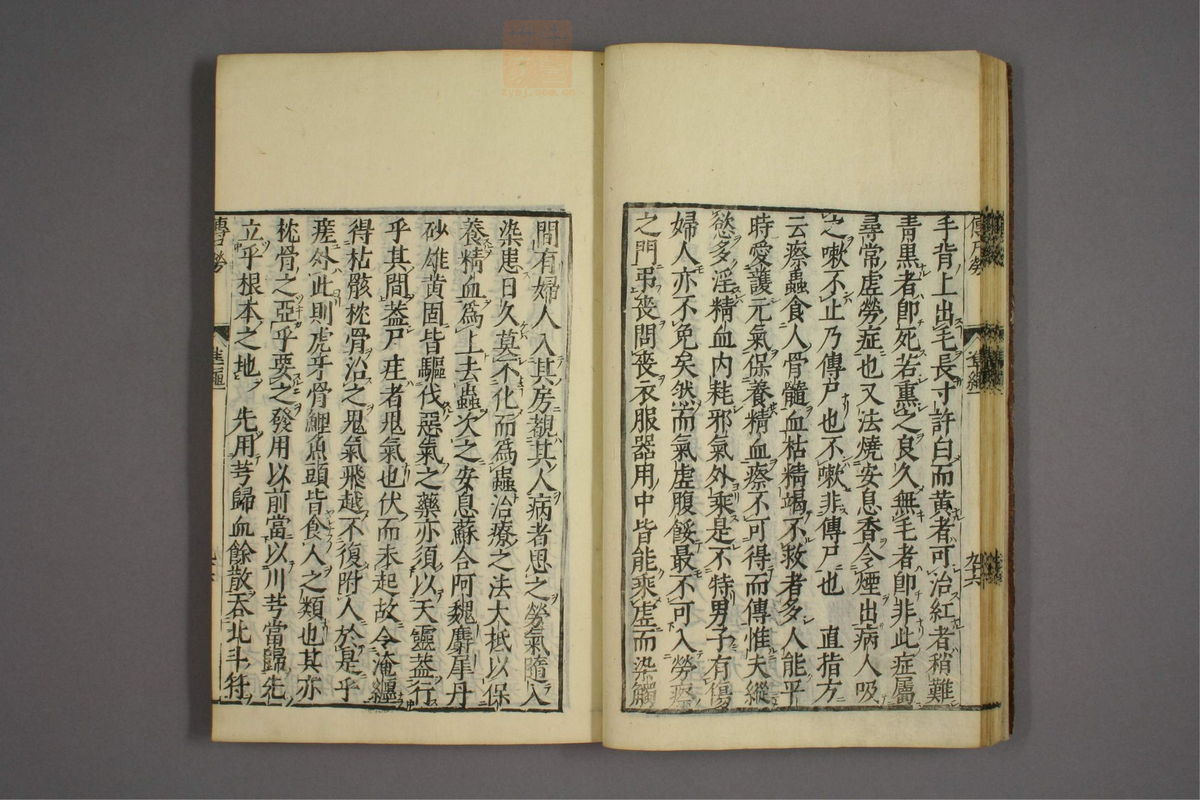 手背上出毛長寸許白而黃者可治紅者稍難
青黑者卽死若熏之良久無毛者卽非此症屬
尋常虛勞症也又法燒安息香令煙出病人吸
之嗽不止乃傳尸也不嗽非傳尸也 直指方
云瘵蟲食人骨髓血枯精竭不救者多人能平
時愛護元氣保養精血瘵不可得而傳惟夫縱
慾多淫精血內耗邪氣外乘是不特男子有傷
婦人亦不免矣然而氣虛腹餒最不可入勞瘵
之門弔喪問喪衣服器用中皆能乘虛而染觸
間有婦人入其房覩其人病者思之勞氣隨入
染患日久莫不化而爲蟲治療之法大柢以保
養精血爲上去蟲次之安息蘇合阿魏麝犀丹
砂雄黃固皆驅伐惡氣之藥亦須以天靈蓋行
乎其間蓋尸疰者鬼氣也伏而未起故令淹纏
得枯骸枕骨治之鬼氣飛越不復附人於是乎
瘥外此則虎牙骨鯉魚頭皆食人之類也其亦
枕骨之亞乎要之發用以前當以川芎當歸先
立乎根本之地 先用芎歸血餘散吞北斗符